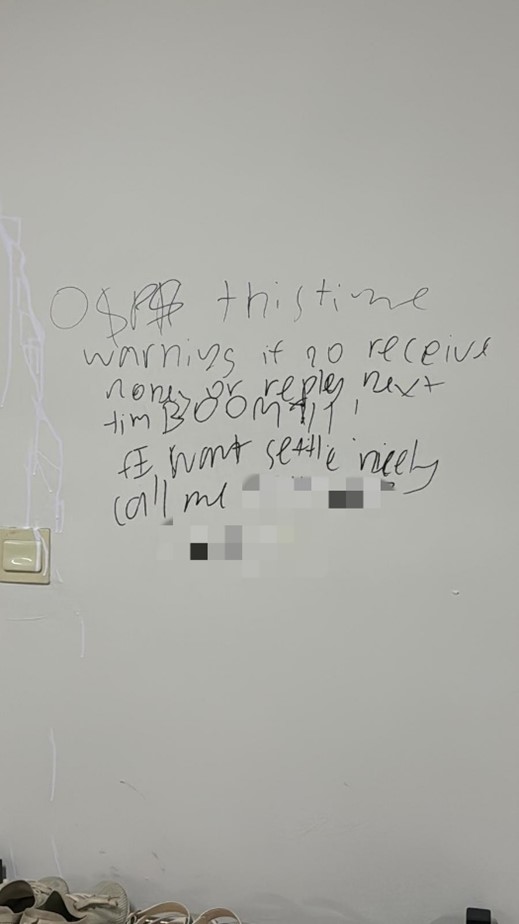 O$P$ this time
warnings if no receive
money or reply next
tim BOOM!!!!
If want settle nicely
call me